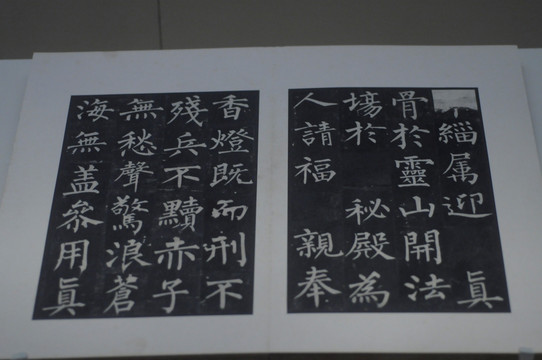 緇属迎 真
骨於靈山開法
場於 秘殿為
人請福 親奉
香燈既而刑不
殘兵不黷赤子
無愁聲驚浪蒼
海無蓋叅用真